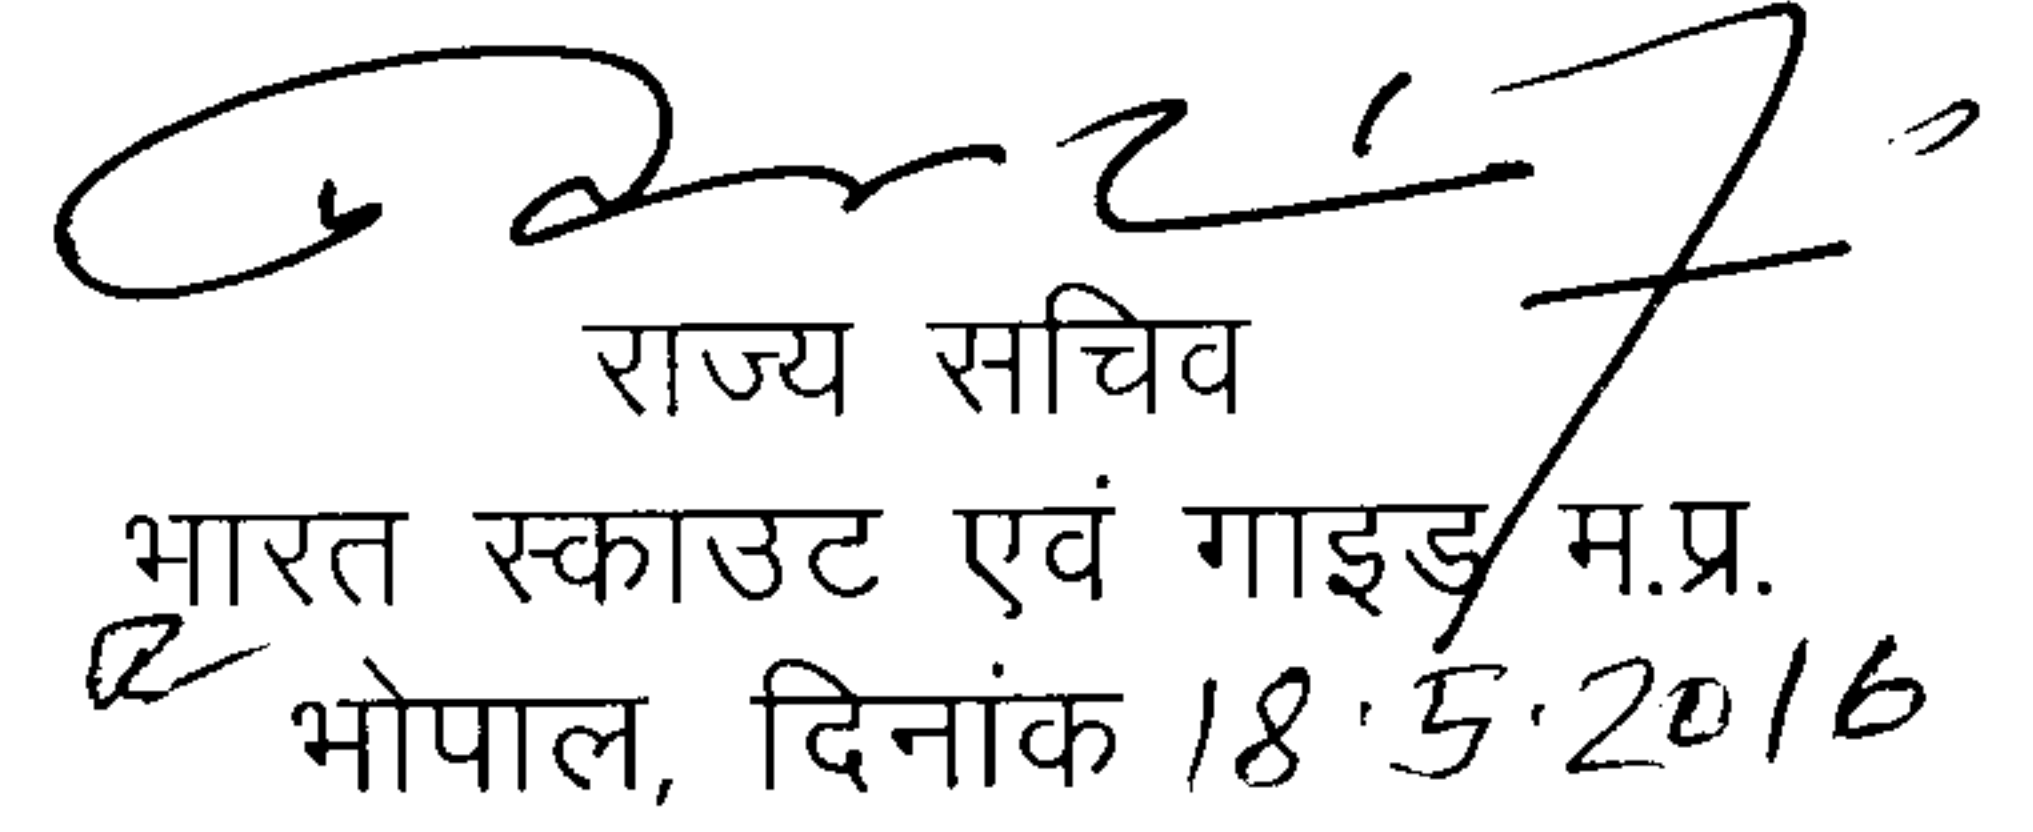 राज्य सचिव
भारत स्काउट एवं गाइड म.प्र.
भोपाल, दिनांक 18.5.2016